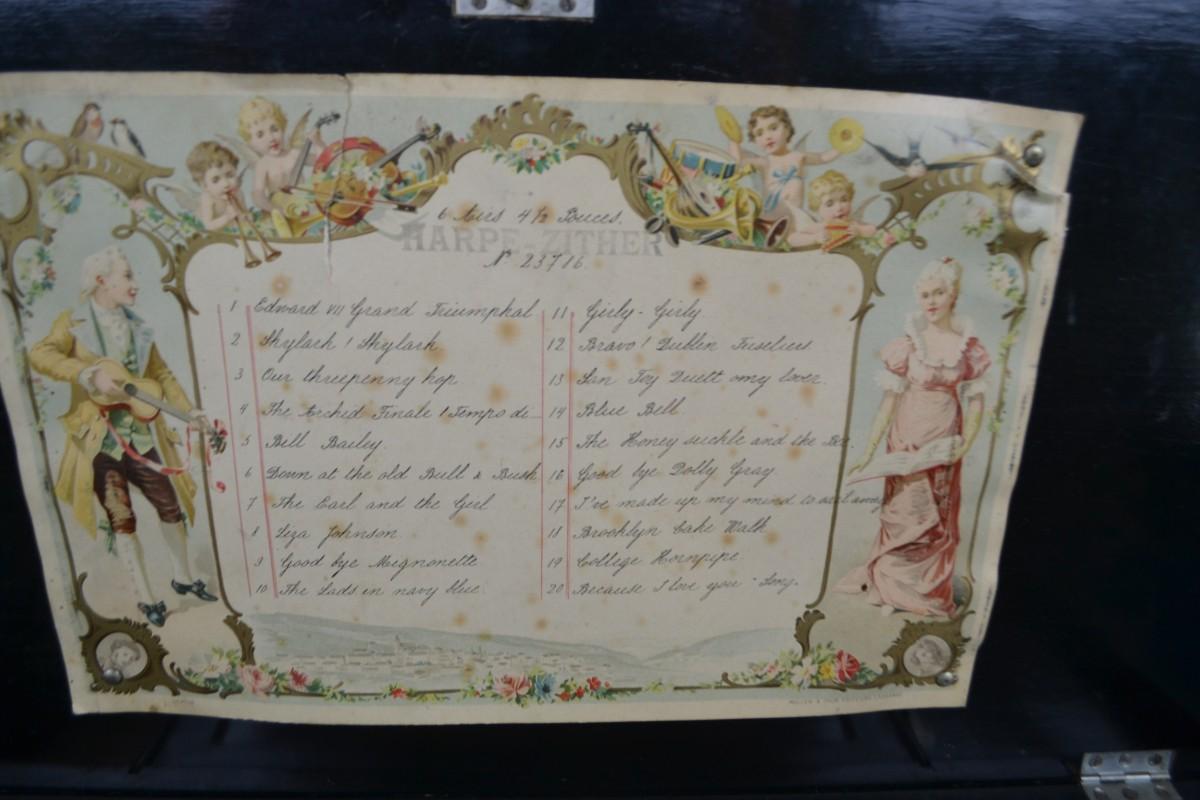 6 Airs 4½ Pouces.
HARPE-ZITHER
Nº 23716
1 Edward VII Grand Triumphal
2 Skylark! Skylark
3 Our threepenny hop
4 The Orchid Finale! Tempo di
5 Bill Bailey.
6 Down at the old Bull & Bush
7 The Earl and the Girl
8 Liza Johnson
9 Good bye Mignonette
10 The Lads in navy blue.
11 Girly-Girly
12 Bravo! Dublin Fusiliers
13 San Toy Duett omy lover.
14 Blue Bell
15 The Honey suckle and the Bee.
16 Good bye Dolly Gray
17 I've made up my mind to sail away
18 Brooklyn Cake Walk
19 College Hornpipe
20 Because I love you - Song.